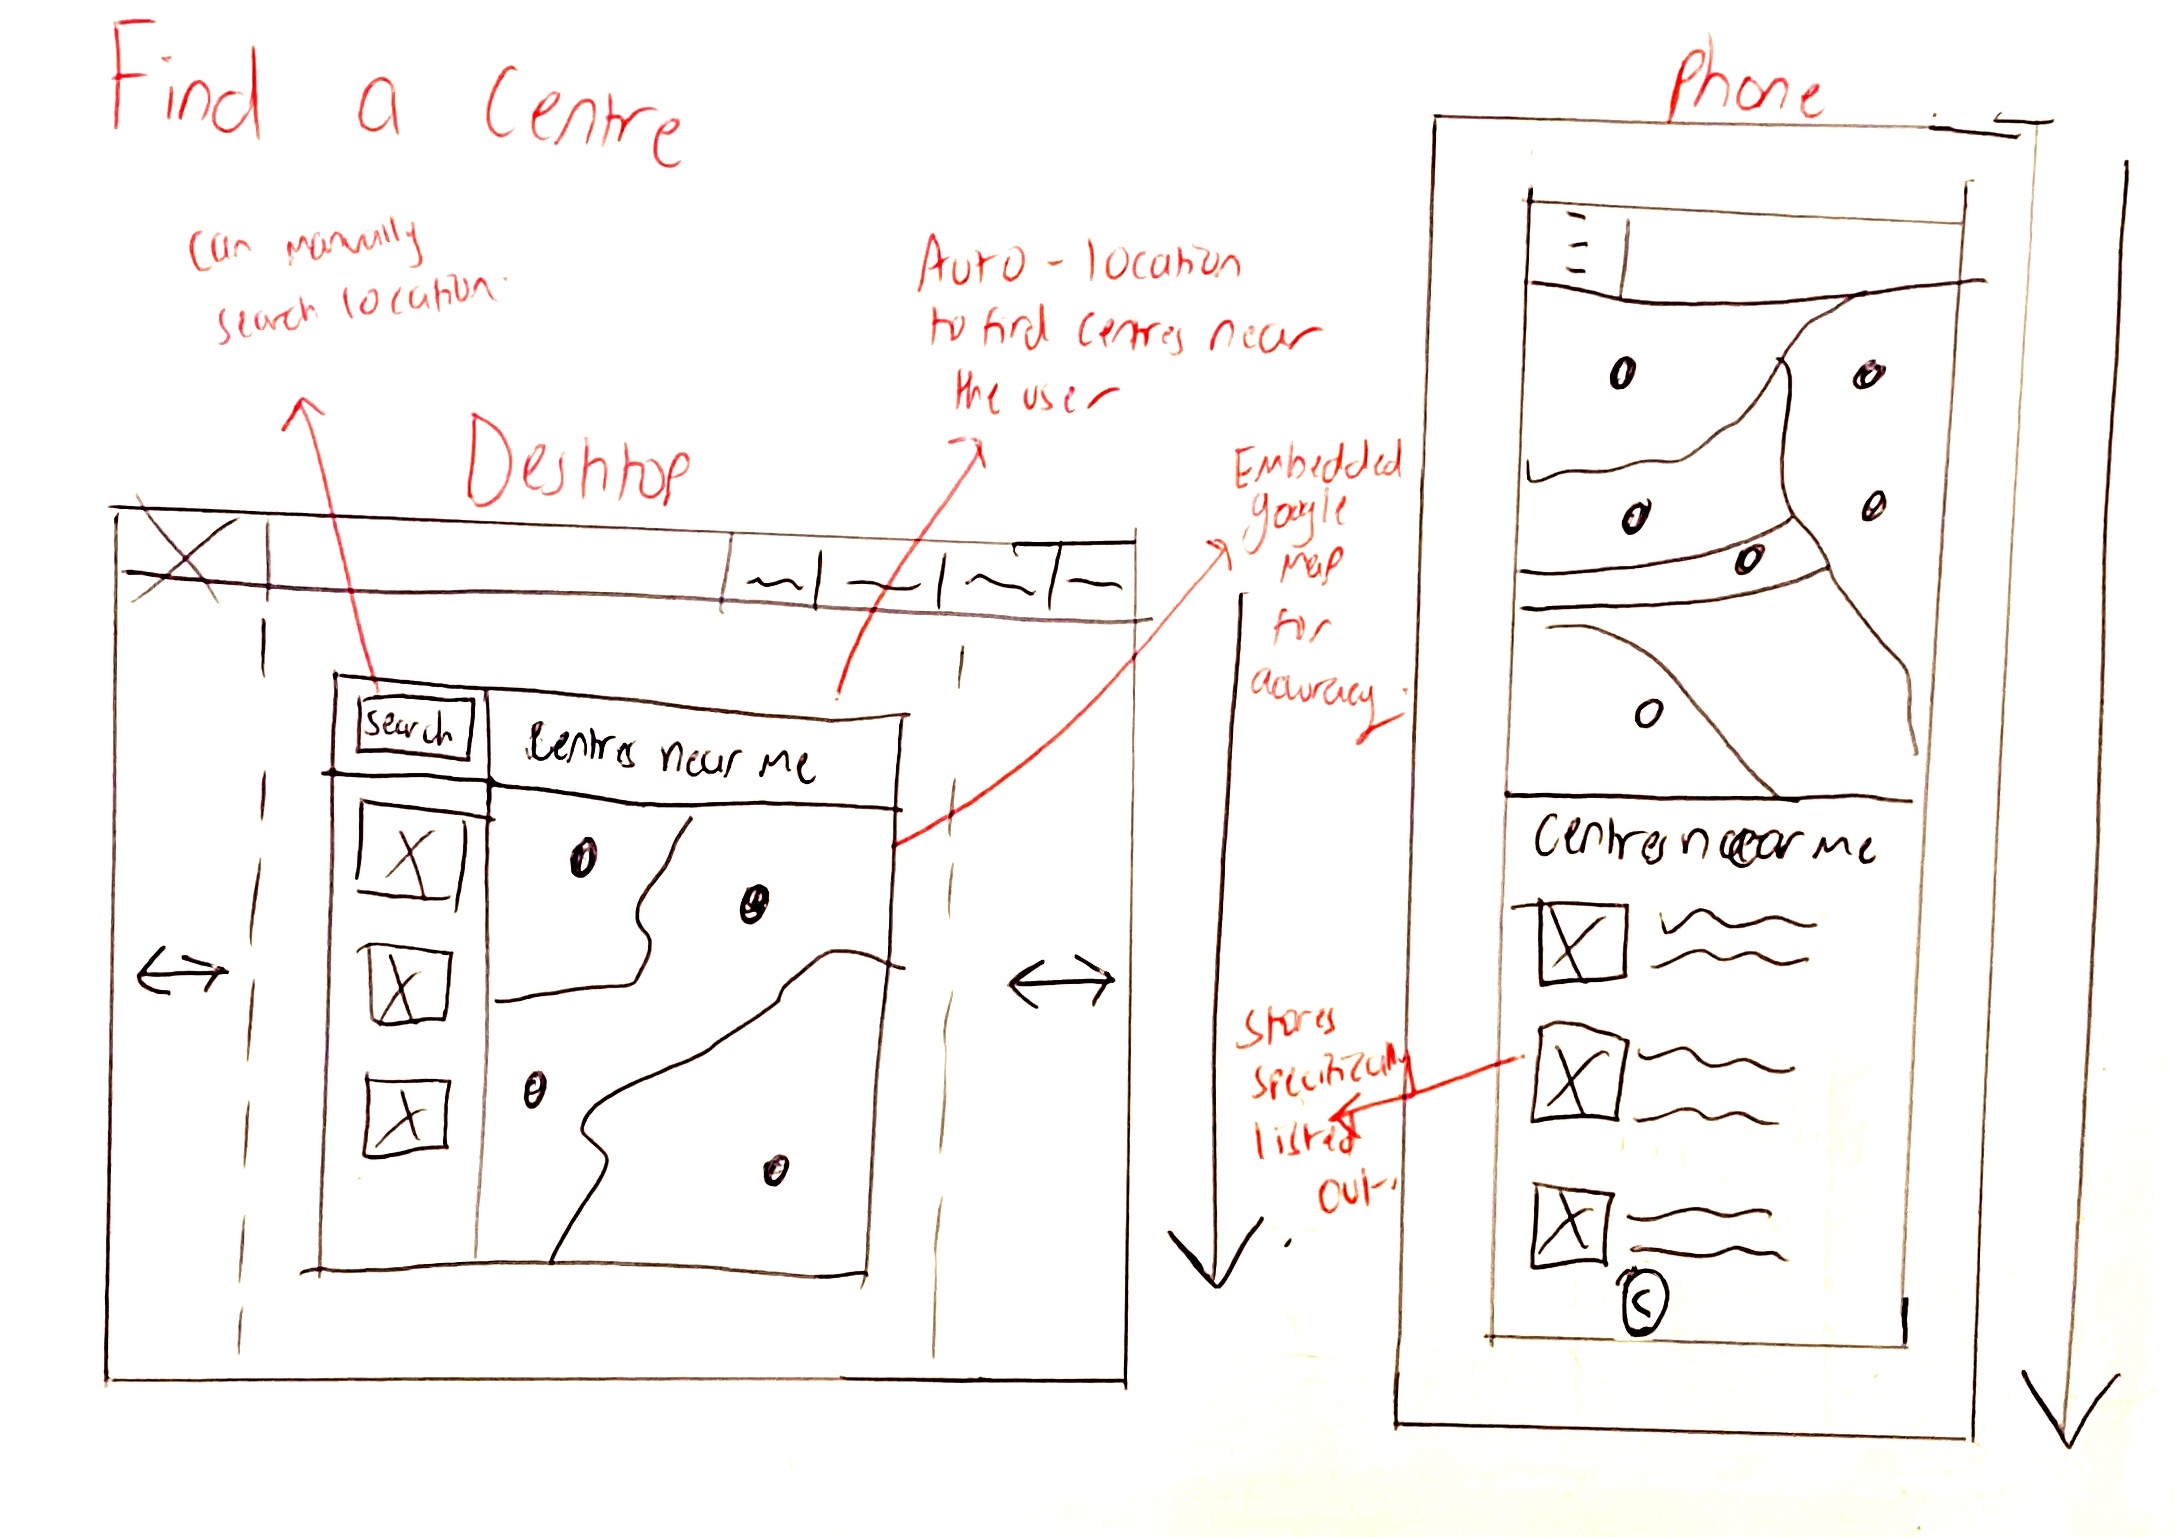 Find a Centre
Phone
Can manually
search location.
Auto-location
to find centres near
the user
Desktop
Embedded
google
map
for
accuracy.
search
Centres near me
Centres near me
Stores
specifically
listed
out.